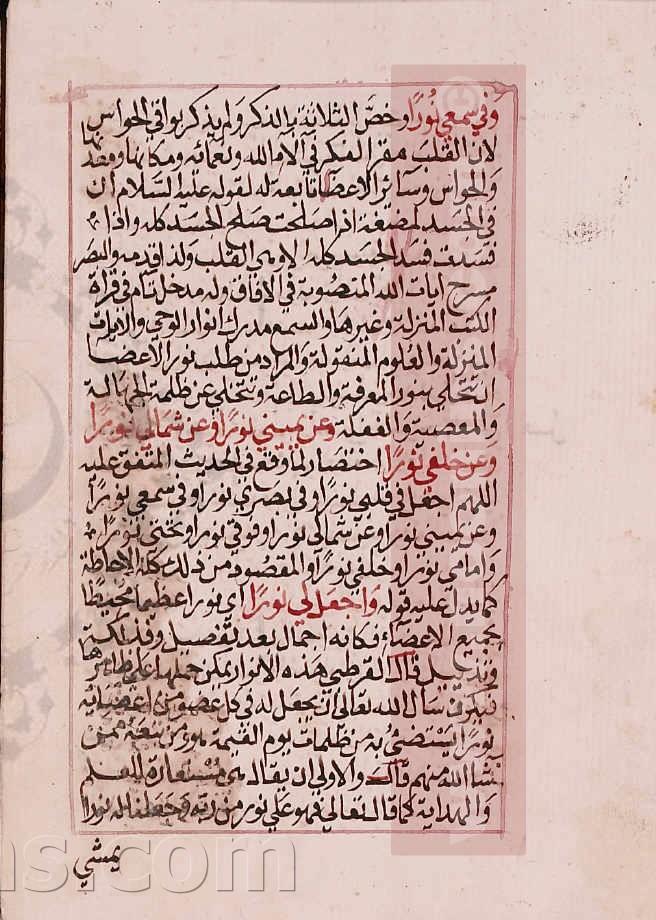 وفي سمعي نورًا وخصّ الثلاثة بالذكر ولم يذكر بواقي الحواس
لان القلب مقر الفكر في آلاء الله ونعمائه ومكانها ومعدنها
والحواس وسائر الاعضا تابعة له لقوله عليه السلام ان
في الجسد لمضغة اذا صلحت صلح الجسد كله واذا
فسدت فسد الجسد كله الا وهي القلب ولذا قدمه والبصر
مسرح ايات الله المنصوبة في الافاق وله مدخل تام في قراة
الكتب المنزلة وغيرها والسمع مدرك انوار الوحي والايات
المنزلة والعلوم المنقولة والمراد من طلب نور الاعضا
ان تتحلى بنور المعرفة والطاعة وتتخلى عن ظلمة الجهالة
والمعصية والغفلة وعن يميني نورًا وعن شمالي نورًا
وعن خلفي نورًا اختصار لما وقع في الحديث المتفق عليه
اللهم اجعل في قلبي نورا وفي بصري نورا وفي سمعي نورًا
وعن يميني نورا وعن شمالي نورا وفوقي نورا وتحتي نورًا
وامامي نورا وخلفي نورًا والمقصود من ذلك كله الاحاطة
كما يدل عليه قوله واجعل لي نورًا اي نورا عظيما محيطًا
بجميع الاعضاء فكانه اجمال بعد تفصيل وفذلكة
وتذييل قال القرطبي هذه الانوار يمكن حملها على ظاهرها
فيكون سال الله تعالى ان يجعل له في كل عضو من اعضائه
نورًا يستضيُ به من ظلمات يوم القيمة هو ومن تبعه ممن
شا الله منهم قال والاولى ان يقال هي مستعارة للعلم
والهداية كما قال تعالى فهو على نور من ربه وجعلنا له نورا
يمشي
ns.com